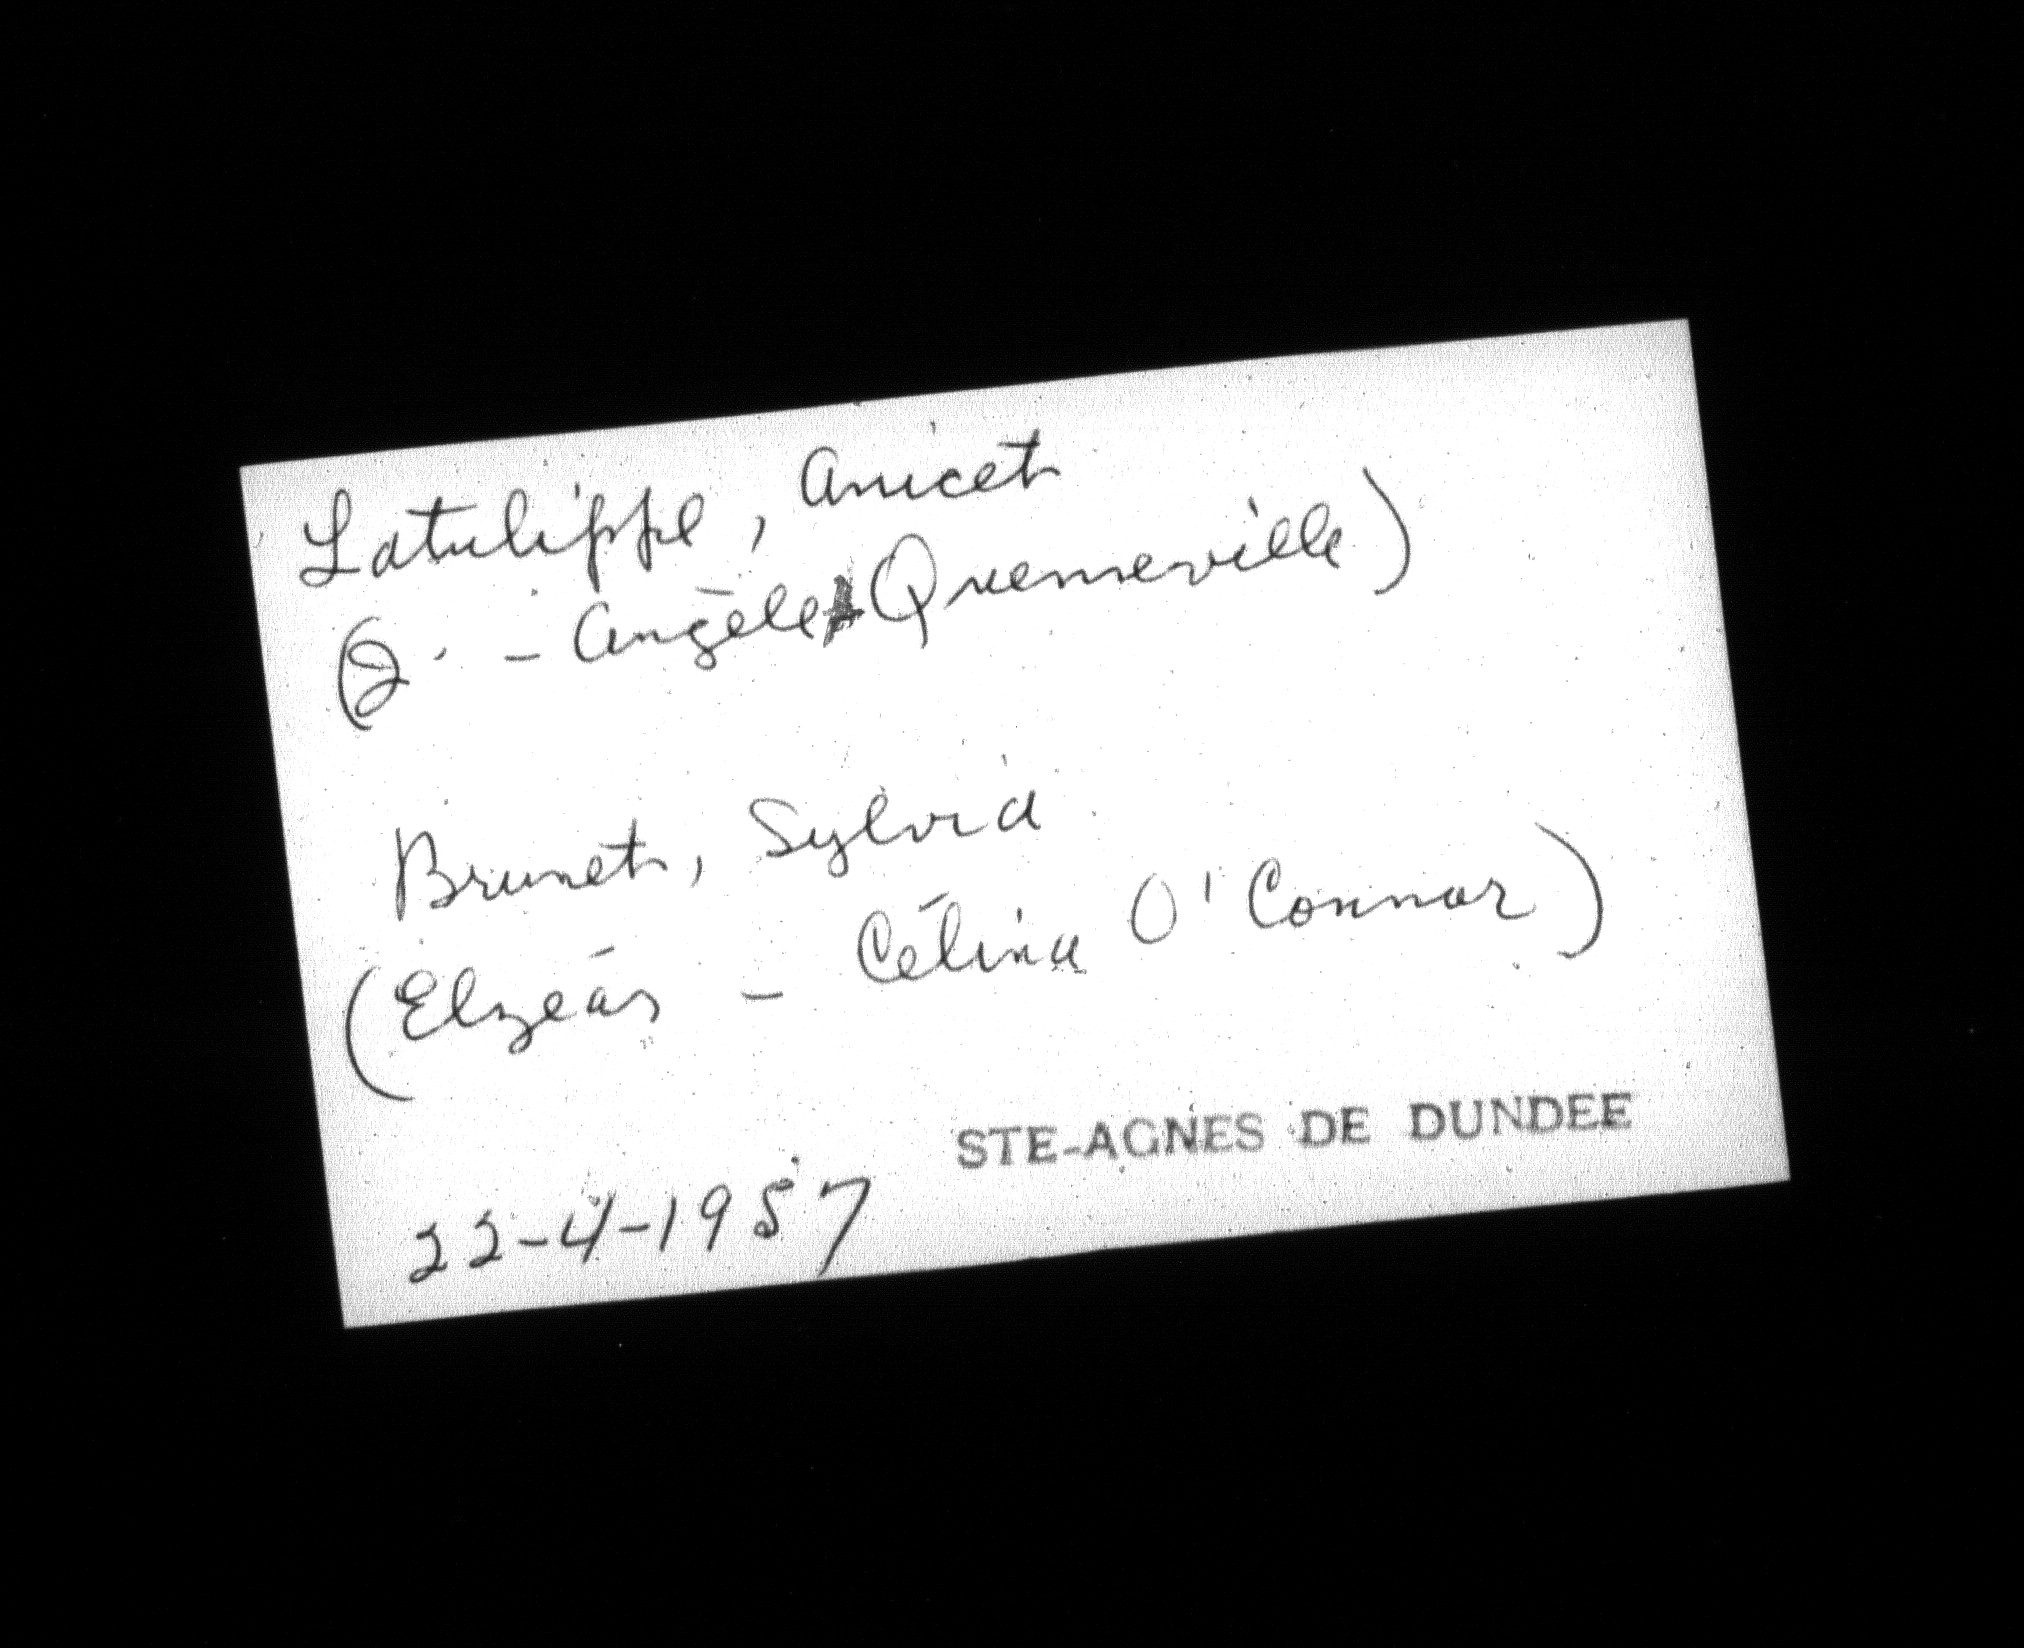 Latulippe, Anicet
(J. - Angèle Quenneville)
Brunet, Sylvia
(Elzéar - Célina O'Connor)
STE-AGNES DE DUNDEE
22-4-1957